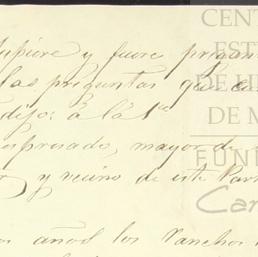 supiere y fuere pregun
las preguntas que co
dijo: á la 1ª
espresado, mayor de
y vecino de este Par
os años los Ranchos
CENT
EST
DE HI
DE M
FUN
Car